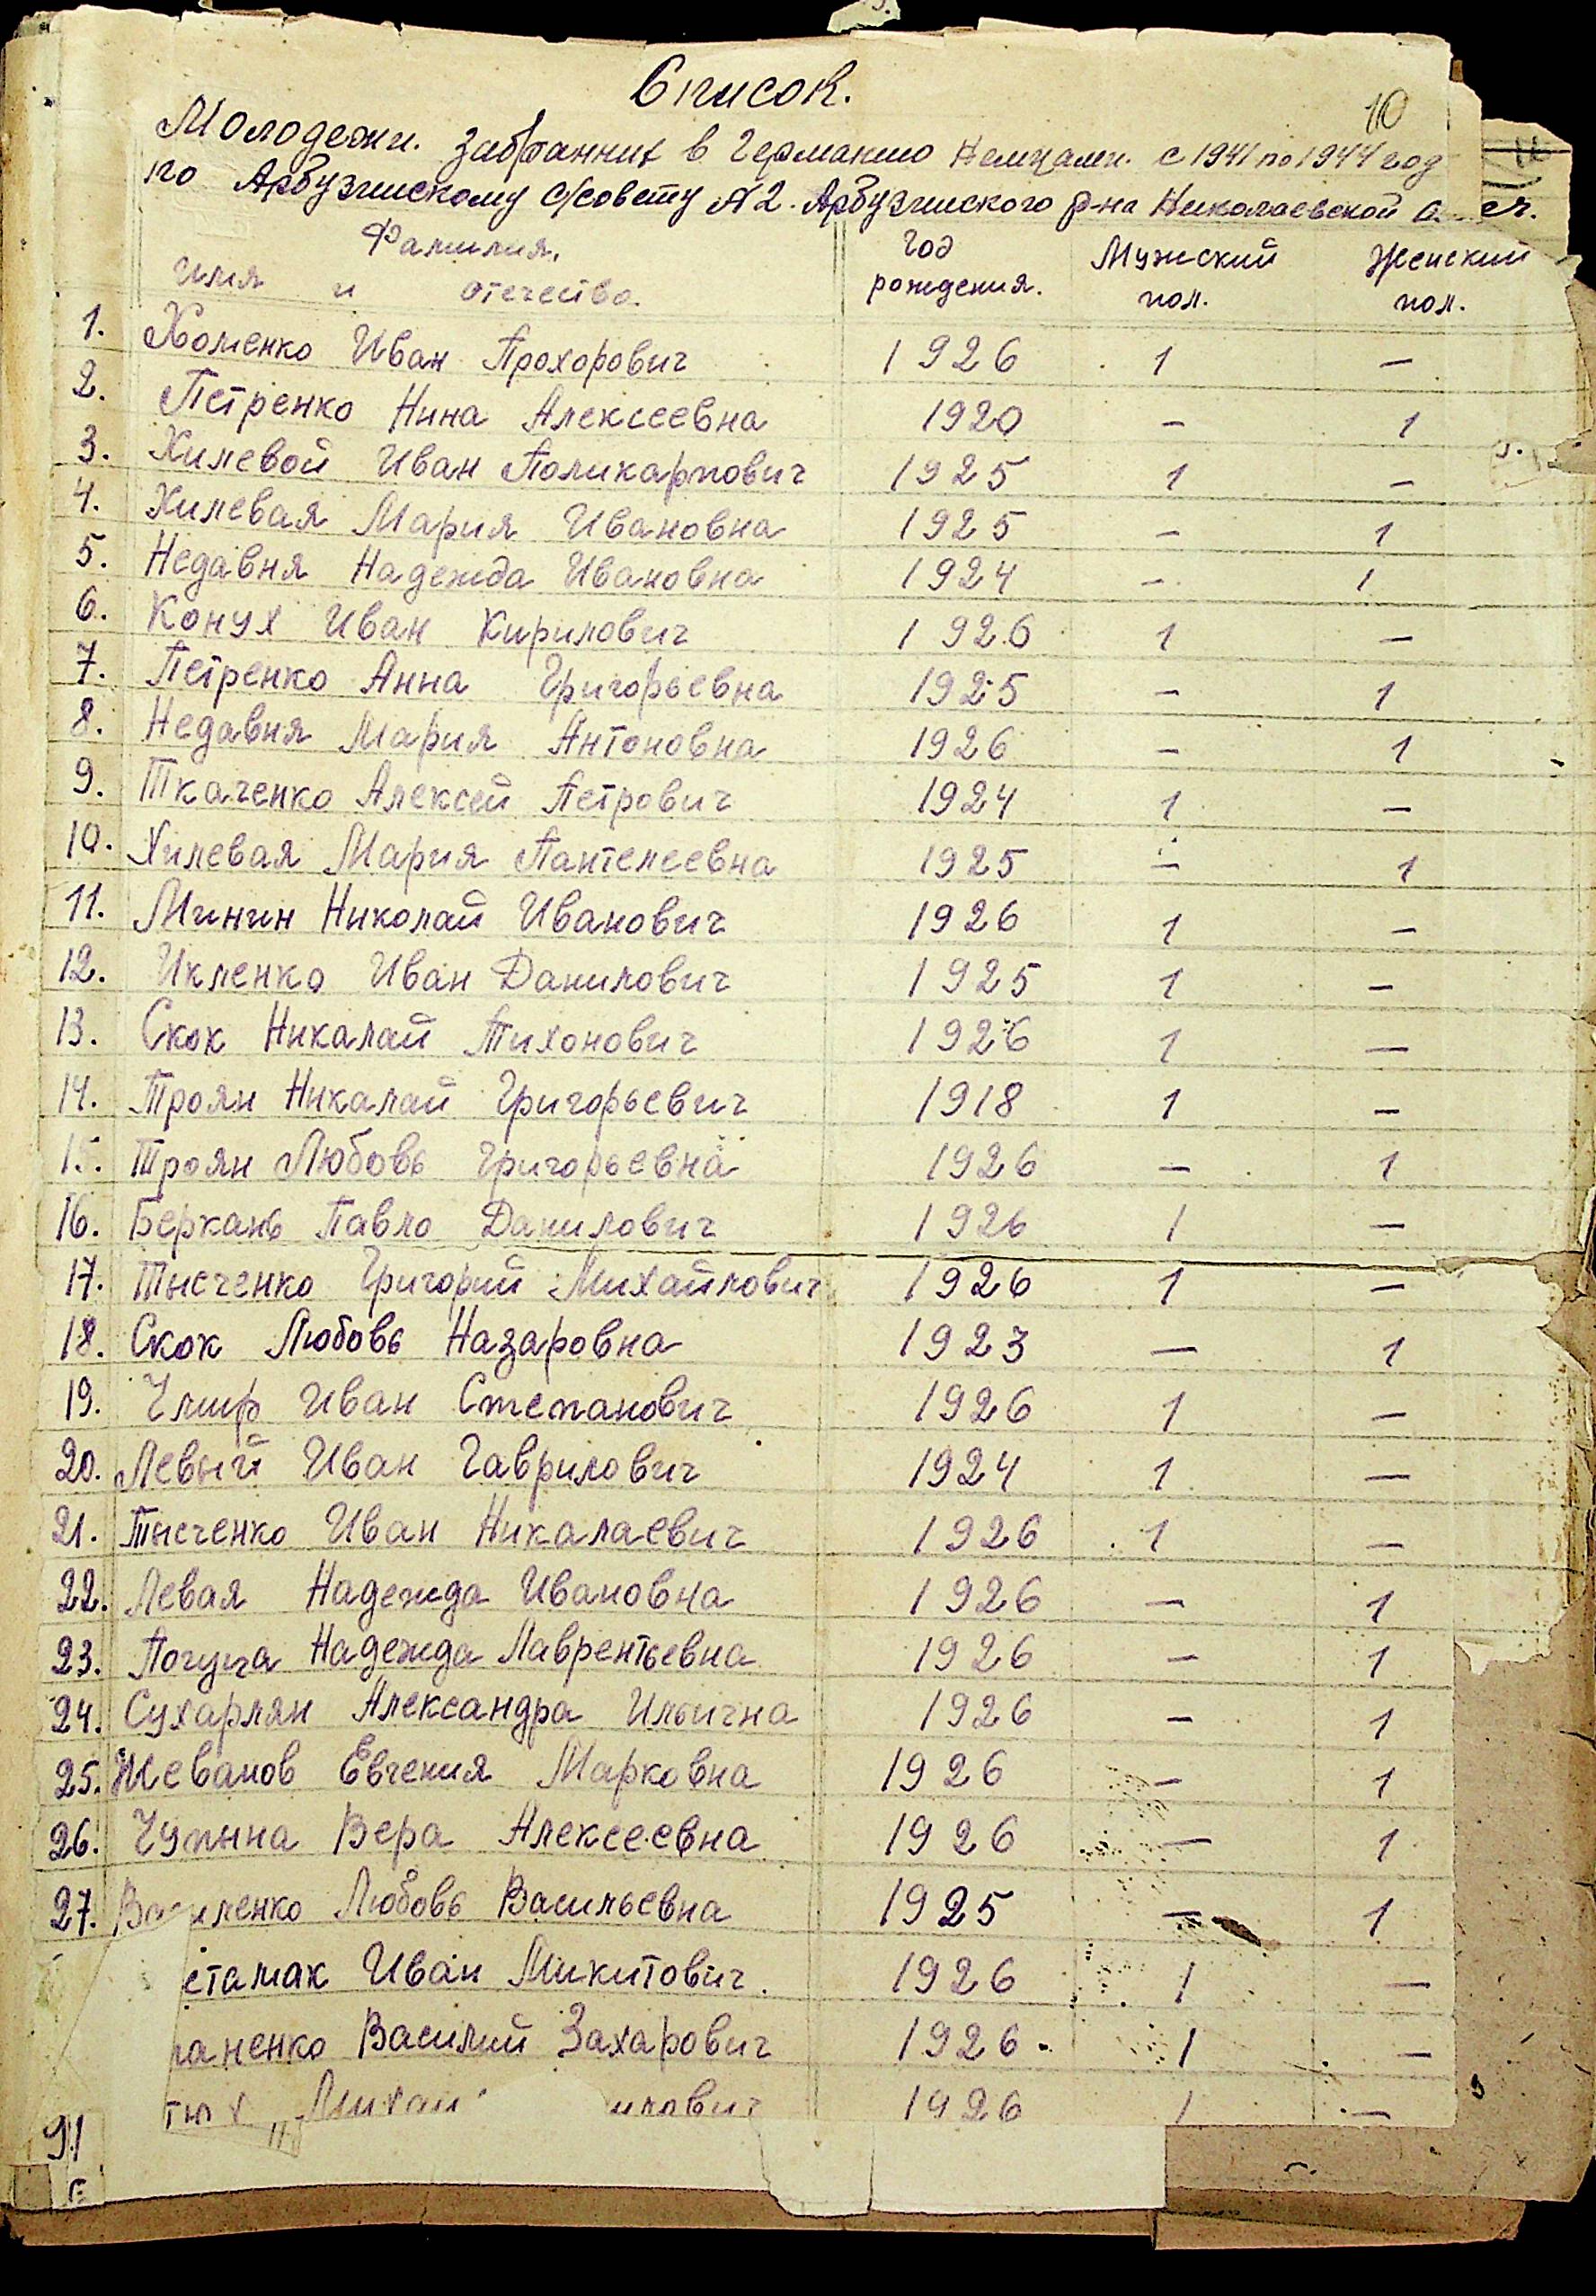 Список.
10
Молодежи. забранних в Германию Немцами. с 1941 по 1944 год
по Арбузинскому с/совету №2. Арбузинского р-на Николаевской
Фамилия, Год Мужский Женский
имя и отечество. рождения. пол. пол.
1. Хоменко Иван Прохорович 1926 1 —
2. Петренко Нина Алексеевна 1920 — 1
3. Хилевой Иван Поликарпович 1925 1 —
4. Хилевая Мария Ивановна 1925 — 1
5. Недавня Надежда Ивановна 1924 — 1
6. Конух Иван Кирилович 1926 1 —
7. Петренко Анна Григорьевна 1925 — 1
8. Недавня Мария Антоновна 1926 — 1
9. Ткаченко Алексей Петрович 1924 1 —
10. Хилевая Мария Пантелеевна 1925 — 1
11. Минин Николай Иванович 1926 1 —
12. Икленко Иван Данилович 1925 1 —
13. Скок Никалай Тихонович 1926 1 —
14. Троян Никалай Григорьевич 1918 1 —
15. Троян Любовь Григорьевна 1926 — 1
16. Беркань Павло Данилович 1926 1 —
17. Тысченко Григорий Михайлович 1926 1 —
18. Скок Любовь Назаровна 1923 — 1
19. Чмир Иван Степанович 1926 1 —
20. Левый Иван Гаврилович 1924 1 —
21. Тысченко Иван Никалаевич 1926 1 —
22. Левая Надежда Ивановна 1926 — 1
23. Надежда Лаврентьевна 1926 — 1
24. Сухарлян Александра Ильична 1926 — 1
25. Жеванов Евгения Марковна 1926 — 1
26. Чупына Вера Алексеевна 1926 — 1
27. Василенко Любовь Васильевна 1925 — 1
стамак Иван Микитович. 1926 1 —
раненко Василий Захарович 1926 1 —
илович 1926 1 —
91